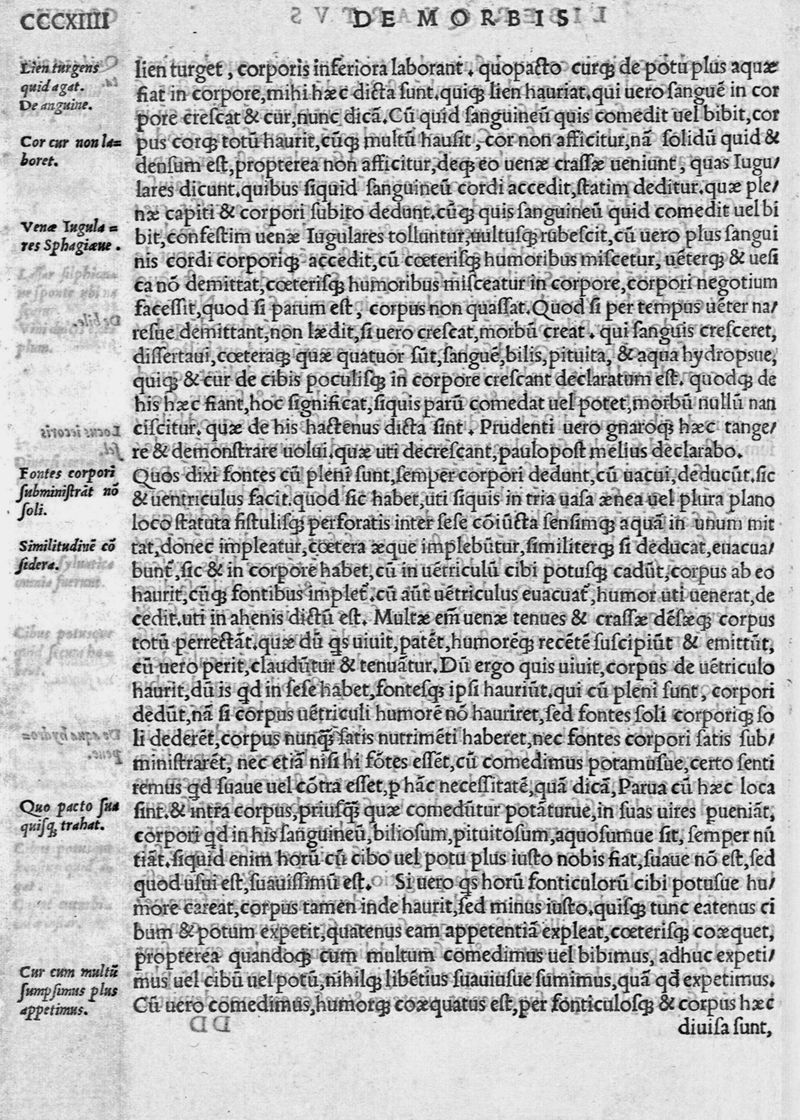 CCCXIIII
DE MORBIS
Lien turgens
quid agat.
De sanguine.
Cor cur non la=
boret.
Venæ Iugula=
res Sphagiæue.
Fontes corpori
subministrāt nō
soli.
Similitudinē cō
sidera.
Quo pacto sua
quisq; trahat.
Cur cum multū
sumpsimus plus
appetimus.
lien turget, corporis inferiora laborant. quopacto curq; de potu plus aquæ
fiat in corpore, mihi hæc dicta sunt. quiq; lien hauriat, qui uero sanguē in cor
pore crescat & cur, nunc dicā. Cū quid sanguineū quis comedit uel bibit, cor
pus corq; totū haurit, cūq; multū hausit, cor non afficitur, nā solidū quid &
densum est, propterea non afficitur, deq; eo uenæ crassæ ueniunt, quas Iugu/
lares dicunt. quibus siquid sanguineū cordi accedit, statim deditur. quæ ple/
næ capiti & corpori subito dedunt. cūq; quis sanguineū quid comedit uel bi
bit, confestim uenæ Iugulares tolluntur, uultusq; rubescit, cū uero plus sangui
nis cordi corporiq; accedit, cū cœterisq; humoribus miscetur, uēterq; & uesi
ca nō demittat, cœterisq; humoribus misceatur in corpore, corpori negotium
facessit, quod si parum est, corpus non quassat. Quod si per tempus uēter na/
resue demittant, non lædit, si uero crescat, morbū creat. qui sanguis cresceret,
dissertaui, cœteraq; quæ quatuor sūt, sanguē, bilis, pituita, & aqua hydropsue,
quiq; & cur de cibis poculisq; in corpore crescant declaratum est. quodq; de
his hæc fiant, hoc significat, siquis parū comedat uel potet, morbū nullū nan
ciscitur. quæ de his hactenus dicta sint. Prudenti uero gnaroq; hæc tange/
re & demonstrare uolui. quæ uti decrescant, paulopost melius declarabo.
Quos dixi fontes cū pleni sunt, semper corpori dedunt, cū uacui, deducūt. sic
& uentriculus facit. quod sic habet, uti siquis in tria uasa ænea uel plura plano
loco statuta fistulisq; perforatis inter sese cōiūcta sensimq; aquā in unum mit
tat, donec impleatur, cœtera æque implebūtur, similiterq; si deducat, euacua/
bunt', sic & in corpore habet, cū in uētriculū cibi potusq; cadūt, corpus ab eo
haurit, cūq; fontibus implet'. cū aūt uētriculus euacuat', humor uti uenerat, de
cedit. uti in ahenis dictū est. Multæ em̄ uenæ tenues & crassæ dēsæq; corpus
totū perrectāt. quæ dū qs uiuit, patēt, humorēq; recētē suscipiūt & emittūt,
cū uero perit, claudūtur & tenuātur. Dū ergo quis uiuit, corpus de uētriculo
haurit, dū is qd in sese habet, fontesq; ipsi hauriūt. qui cū pleni sunt, corpori
dedūt, nā si corpus uētriculi humorē nō hauriret, sed fontes soli corporiq; so
li dederēt, corpus nunq̄ satis nutrimēti haberet, nec fontes corpori satis sub/
ministrarēt, nec etiā nisi hi fōtes essēt, cū comedimus potamusue, certo senti
remus qd suaue uel cōtra esset, p hāc necessitatē, quā dicā, Parua cū hæc loca
sint. & intra corpus, priusq̄ quæ comedūtur potāturue, in suas uires pueniāt,
corpori qd in his sanguineū, biliosum, pituitosum, aquosumue sit, semper nū
tiāt. siquid enim horū cū cibo uel potu plus iusto nobis fiat, suaue nō est, sed
quod usui est, suauissimū est. Si uero qs horū fonticulorū cibi potusue hu/
more careat, corpus tamen inde haurit, sed minus iusto. quisq; tunc eatenus ci
bum & potum expetit, quatenus eam appetentiā expleat, cœterisq; coæquet,
propterea quandoq; cum multum comedimus uel bibimus, adhuc expeti/
mus uel cibū uel potū, nihilq; libētius suauiusue sumimus, quā qd expetimus.
Cū uero comedimus, humorq; coæquatus est, per fonticulosq; & corpus hæc
diuisa sunt,